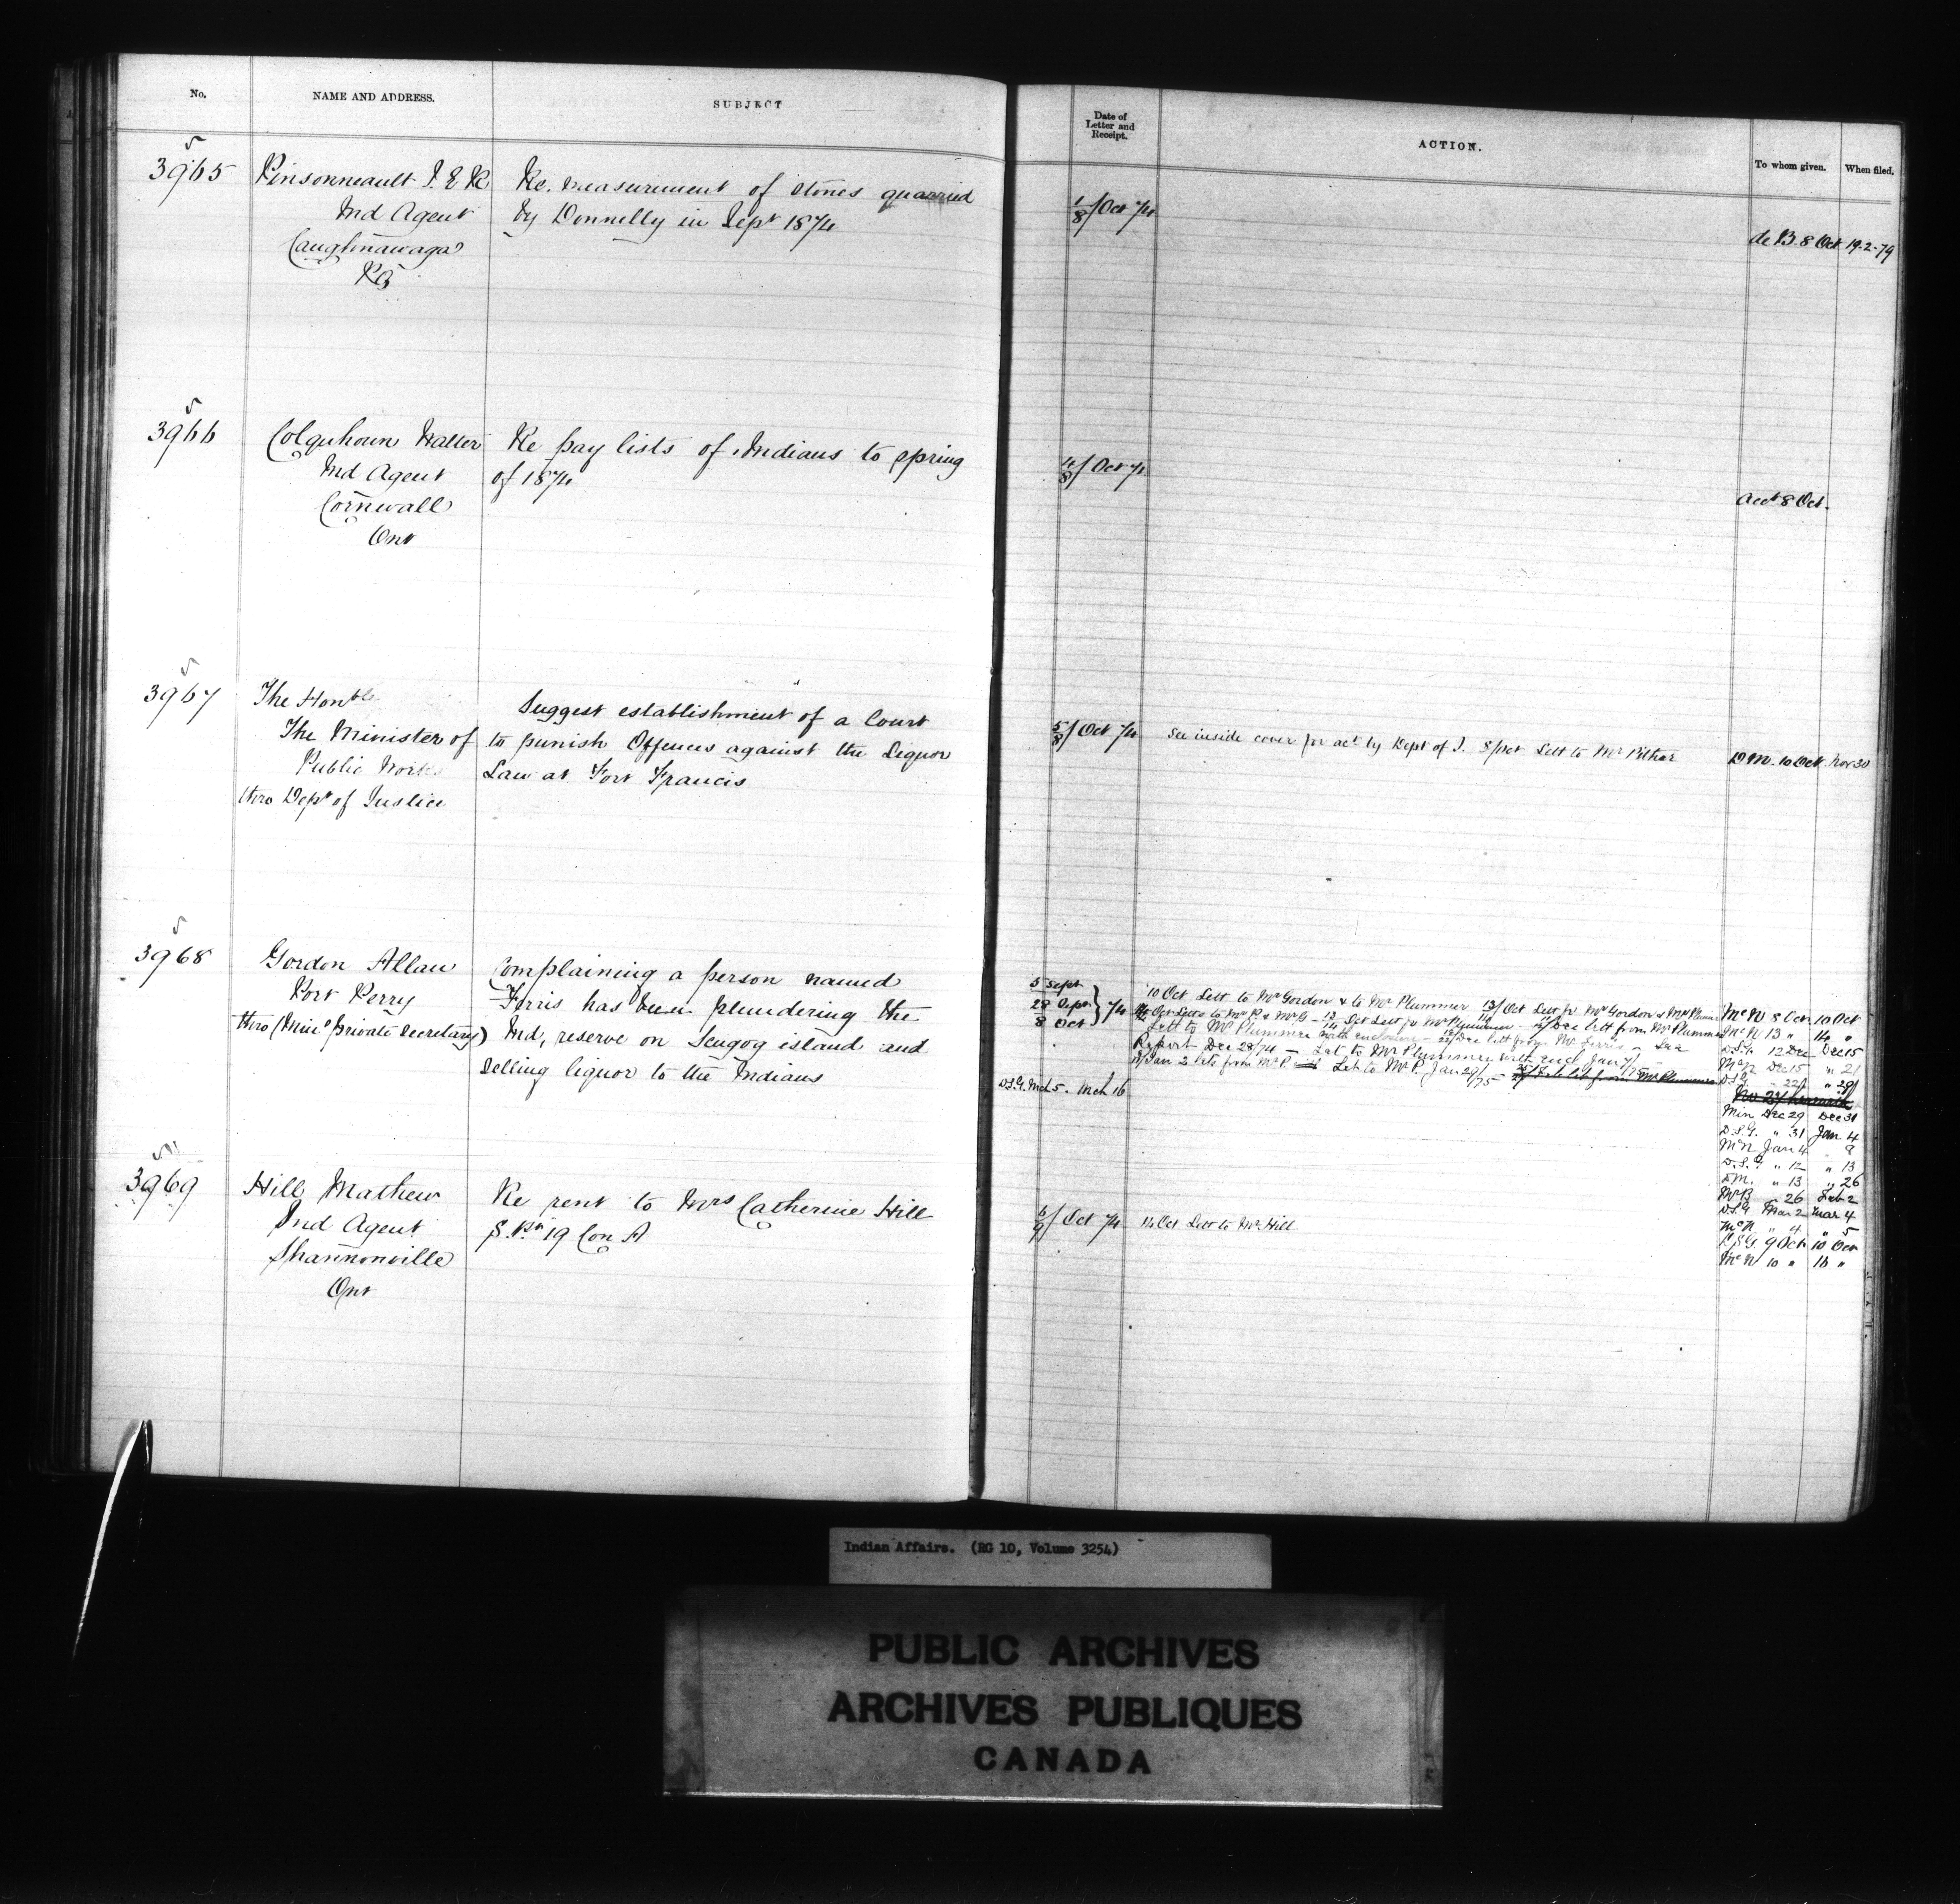 No.
NAME AND ADDRESS.
SUBJECT
Date of
Letter and
Receipt.
ACTION.
To whom given.
When filed.
3965
Pinsonneault I. E. R
Ind Agent
Caughnawaga
PQ
Re. measurement of stones quarried
by Donnelly in Sept 1874
1/8/Oct 74
de B. 8 Oct
19-2-79
3966
Colquhoun Walter
Ind Agent
Cornwall
Ont
Re pay lists of Indians to spring
of 1874
/8/Oct 74
Acct 8 Oct.
3967
The Honble
The Minister of
Public Works
thro Dept of Justice
Suggest establishment of a Court
to punish Offences against the Liquor
Law at Fort Francis
5/8/Oct 74
See inside cover for act by Dept of J. 8/Oct Lett to Mr Pither
D M. 10 Oct.
Nov 30
3968
Gordon Allan
Port Perry
thro (Mins private Secretary)
Complaining a person named
Ferris has been plundering the
Ind, reserve on Scugog island and
Selling liquor to the Indians
5 Sept
28 Sept
8 Oct
} 74
D.S.G. Mch 5. Mch 16
10 Oct Lett to Mr Gordon & to Mr Plummer 13/Oct Lett fr Mr Gordon & Mr Plummer
Oct Letts to Mr P. & Mr G - 13 Oct Lett fr Mr Plummer - Dec lett from Mr Plummer
Lett to Mr Plummer with enclosure - 22/Dec lett from Mr Ferris -
Report Dec 28/74 - Let to Mr Plummer with encl Jan 7/75
Jan 2 lets from Mr P. Let to Mr P. Jan 29/75 - Feb let from Mr Plummer
McN 8 Oct 10 Oct
McN 13 " 14 "
D.S.G. 12 Dec Dec 15
McN Dec 15 " 21
D.S.G. " 22 " 29
Min Dec 29 Dec 31
D.S.G. " 31 Jan 4
McN Jan 4 " 8
D.S.G. " 12 " 13
D M. " 13 " 26
McB " 26 Feb 2
D.S.G Mar 2 Mar 4
McN " 4 " 5
3969
Hill Mathew
Ind Agent
Shannonville
Ont
Re rent to Mrs Catherine Hill
S. Pn 19 Con A
6/9/Oct 74
14 Oct Lett to Mr Hill
D.S.G 9 Oct 10 Oct
McN 10 " 16 "
Indian Affairs. (RG 10, Volume 3254)
PUBLIC ARCHIVES
ARCHIVES PUBLIQUES
CANADA